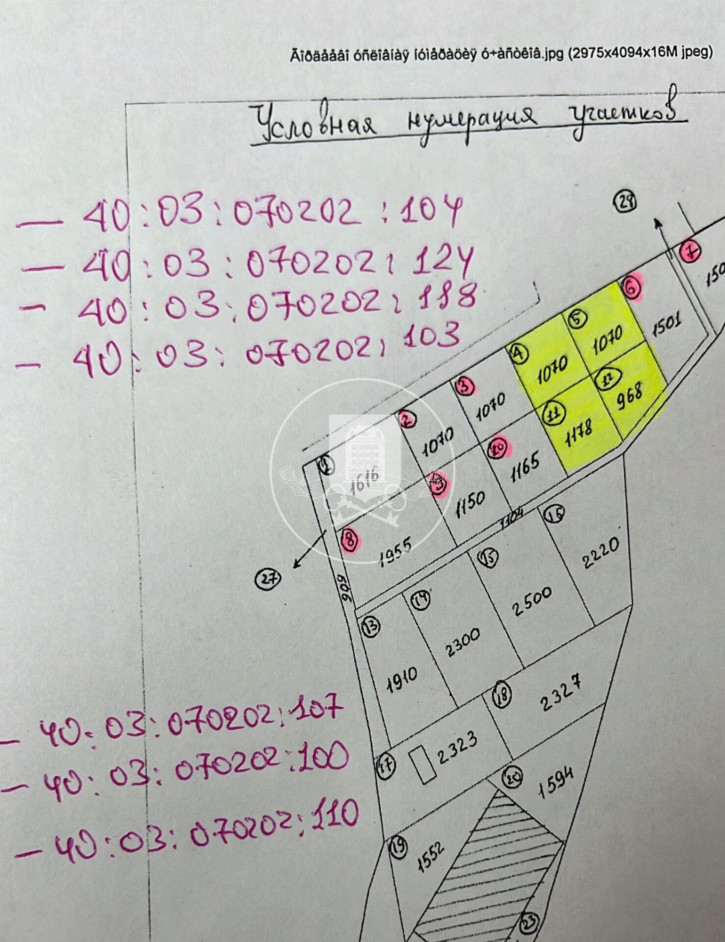 Ãîðäååâî óñëîâíàÿ íóìåðàöèÿ ó÷àñòêîâ.jpg (2975x4094x16M jpeg)
Условная нумерация участков
— 40:03:070202:104
— 40:03:070202:124
— 40:03:070202:118
— 40:03:070202:103
29
7
150
6
1501
5
1070
4
1070
12
968
3
1070
11
1178
2
1070
10
1165
1
1616
9
1150
8
1955
1104
27
606
16
2220
15
2500
14
2300
13
1910
18
2327
17
2323
20
1594
19
1552
23
— 40:03:070202:107
— 40:03:070202:100
— 40:03:070202:110